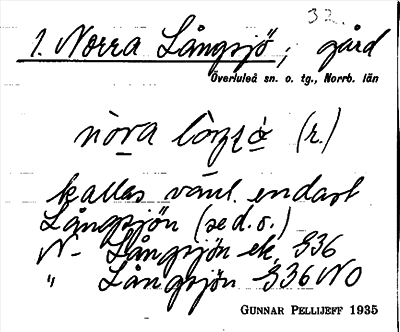 32.
1. Norra Långsjö, gård
Överluleå sn. o. tg., Norrb. län
(r.)
kallas vanl. endast
Långsjön (se d. o.)
N- Långsjön ek. 336
" Långsjön 336 NO
GUNNAR PELLIJEFF 1935